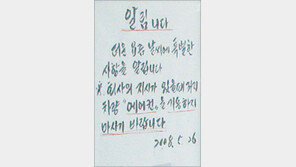 알림니다
더운 요즘 날씨에 특별한
사항을 알립니다
* 회사의 지시가 있을때 까지
차량 "에어컨"을 가동하지
마시기 바랍니다
2008. 5. 26